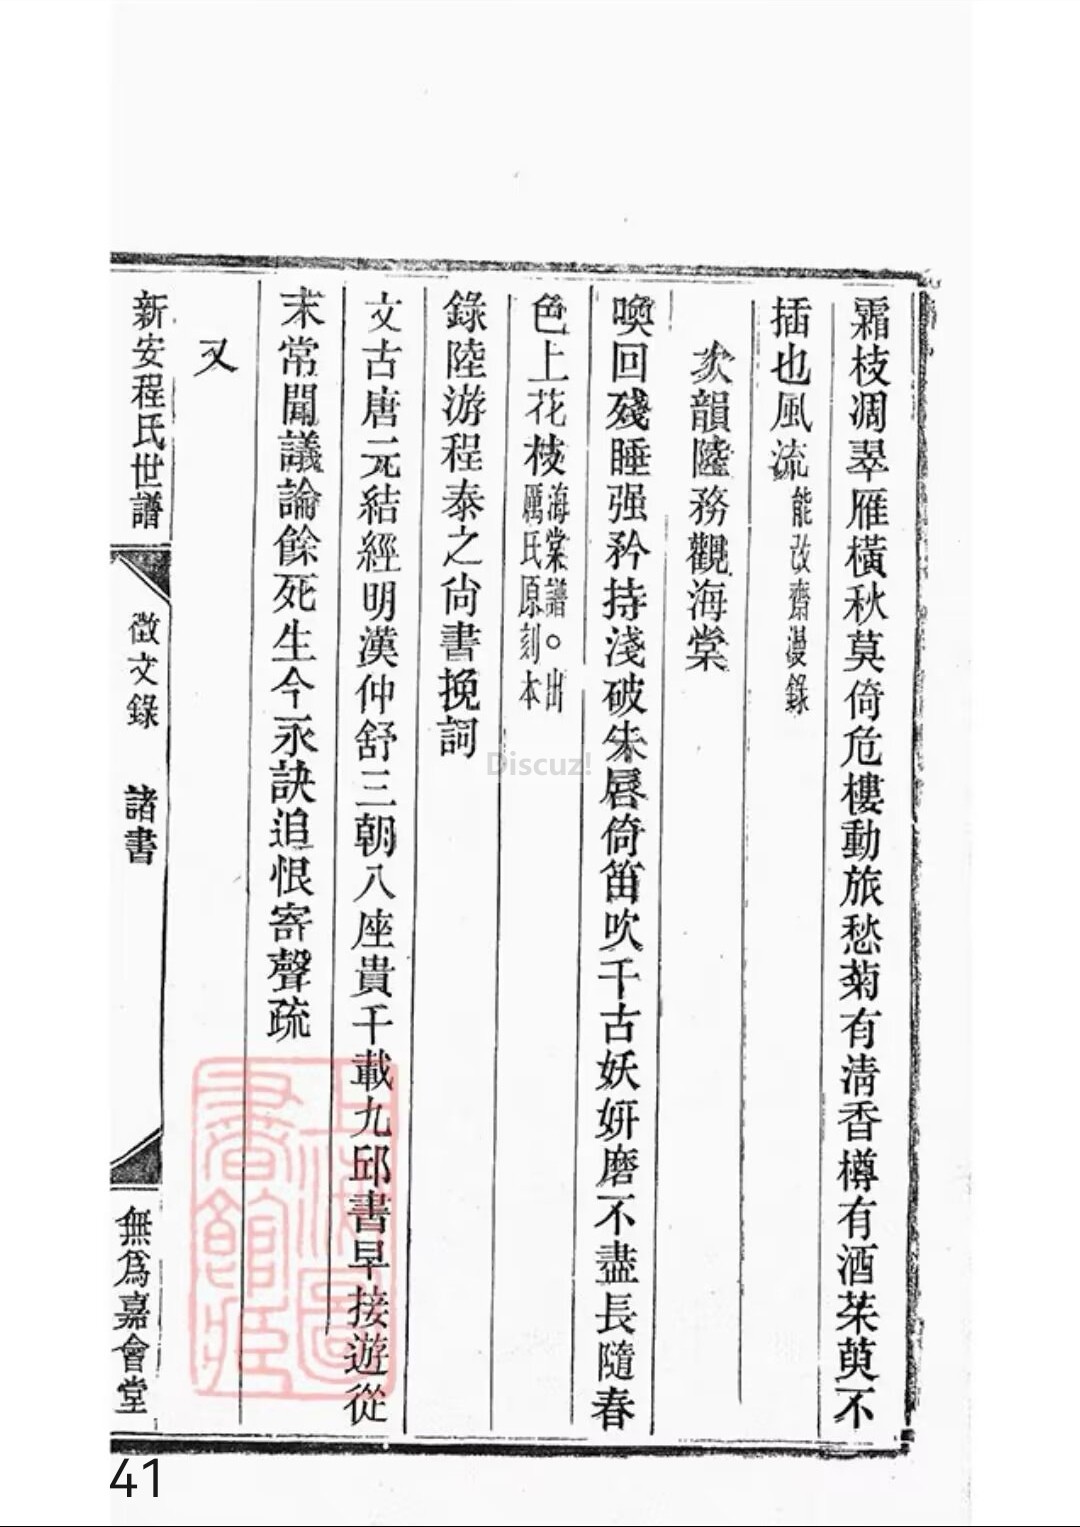 霜枝凋翠雁橫秋莫倚危樓動旅愁菊有清香樽有酒茱萸不
插也風流能改齋漫錄
次韻陸務觀海棠
喚回殘睡强矜持淺破朱唇倚笛吹千古妖妍磨不盡長隨春
色上花枝海棠譜。出厲氏原刻本
錄陸游程泰之尙書挽詞
文古唐元結經明漢仲舒三朝八座貴千載九邱書早接遊從
末常聞議論餘死生今永訣追恨寄聲疏
又
新安程氏世譜
徵文錄 諸書
無爲嘉會堂
上海圖
書館藏
Discuz!
41